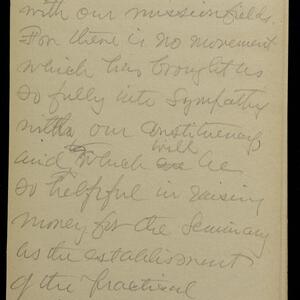 with our mission fields.
For there is no movement
which has brought us
so fully into sympathy
with our constituency
and which will be
so helpful in raising
money for the Seminary
as the establishment
of the Practical